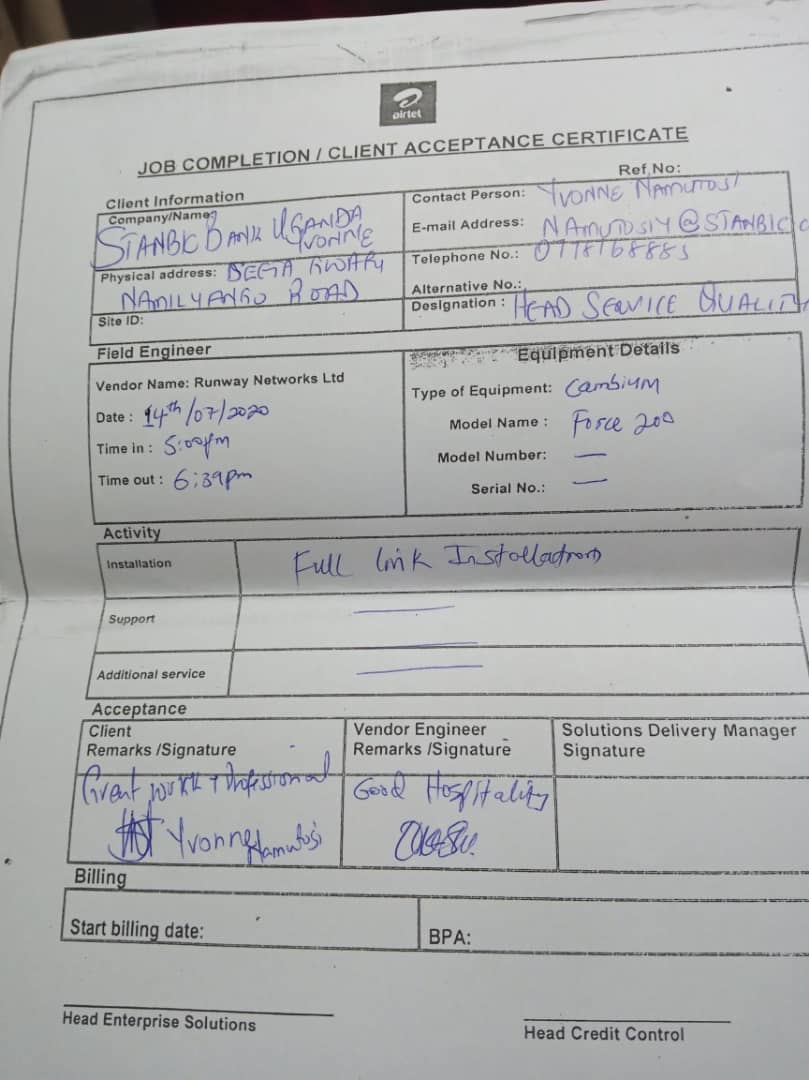 airtel
JOB COMPLETION / CLIENT ACCEPTANCE CERTIFICATE
Ref,No:
Client Information
Company/Name
STANBIC BANK UGANDA
YVONNE
Physical address:
NAMILYANGO ROAD
Site ID:
Contact Person: YVONNE NAMUTOSI
E-mail Address: NAMUTOSIY@STANBIC
Telephone No.:
Alternative No.:
Designation : HEAD SERVICE QUALITY
Field Engineer
Vendor Name: Runway Networks Ltd
Date : 14th/07/2020
Time in : 5:00pm
Time out : 6:39pm
Equipment Details
Type of Equipment: Cambium
Model Name : Force 200
Model Number: —
Serial No.: —
Activity
Installation Full link Installation
Support
Additional service
Acceptance
Client
Remarks /Signature
Great work + Professional
Yvonne Namutosi
Vendor Engineer
Remarks /Signature
Good Hospitality
Solutions Delivery Manager
Signature
Billing
Start billing date:
BPA:
Head Enterprise Solutions
Head Credit Control